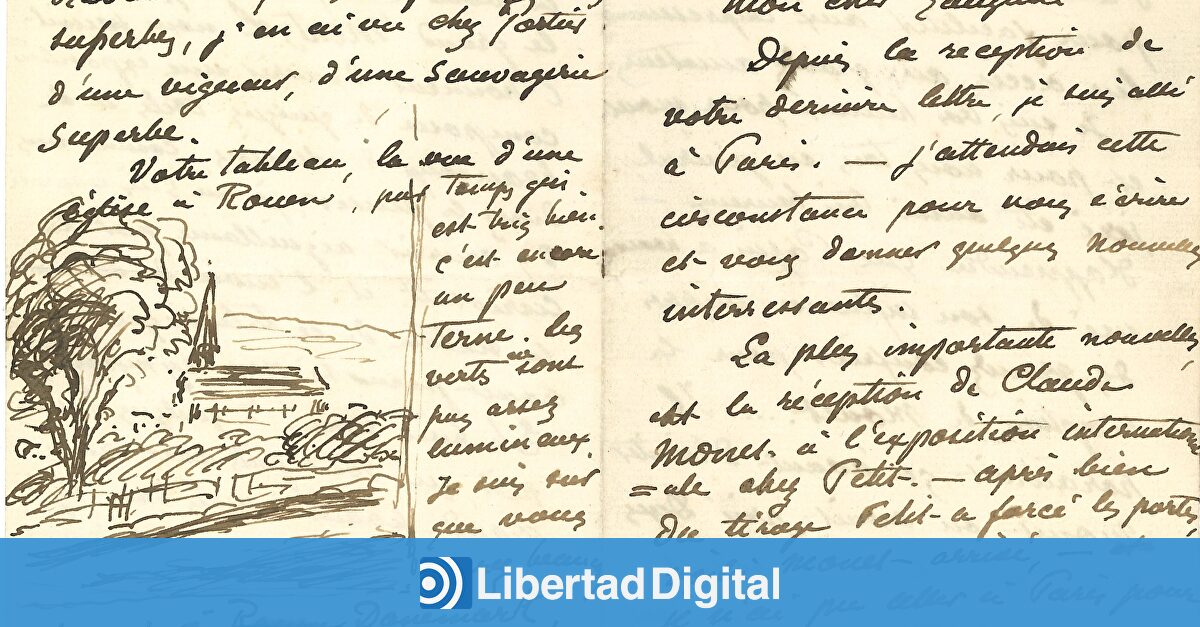 superbes, j'en ai vu chez Portier
d'une vigueur, d'une Sauvagerie
Superbe.
Votre tableau, la vue d'une
église à Rouen, pas
temps qui
est très bien.
c'est encore
un peu
terne. les
verts ne sont
pas assez
lumineux.
Je suis sur
que vous
mon cher
Depuis la reception de
votre dernière lettre, je suis allé
à Paris. — j'attendais cette
circonstance pour vous écrire
et vous donner quelques nouvelles
interressantes.
La plus importante nouvelle,
est la réception de Claude
Monet à l'exposition internation
=ale chez Petit. — après bien
du tirage Petit a forcé les portes
Libertad Digital